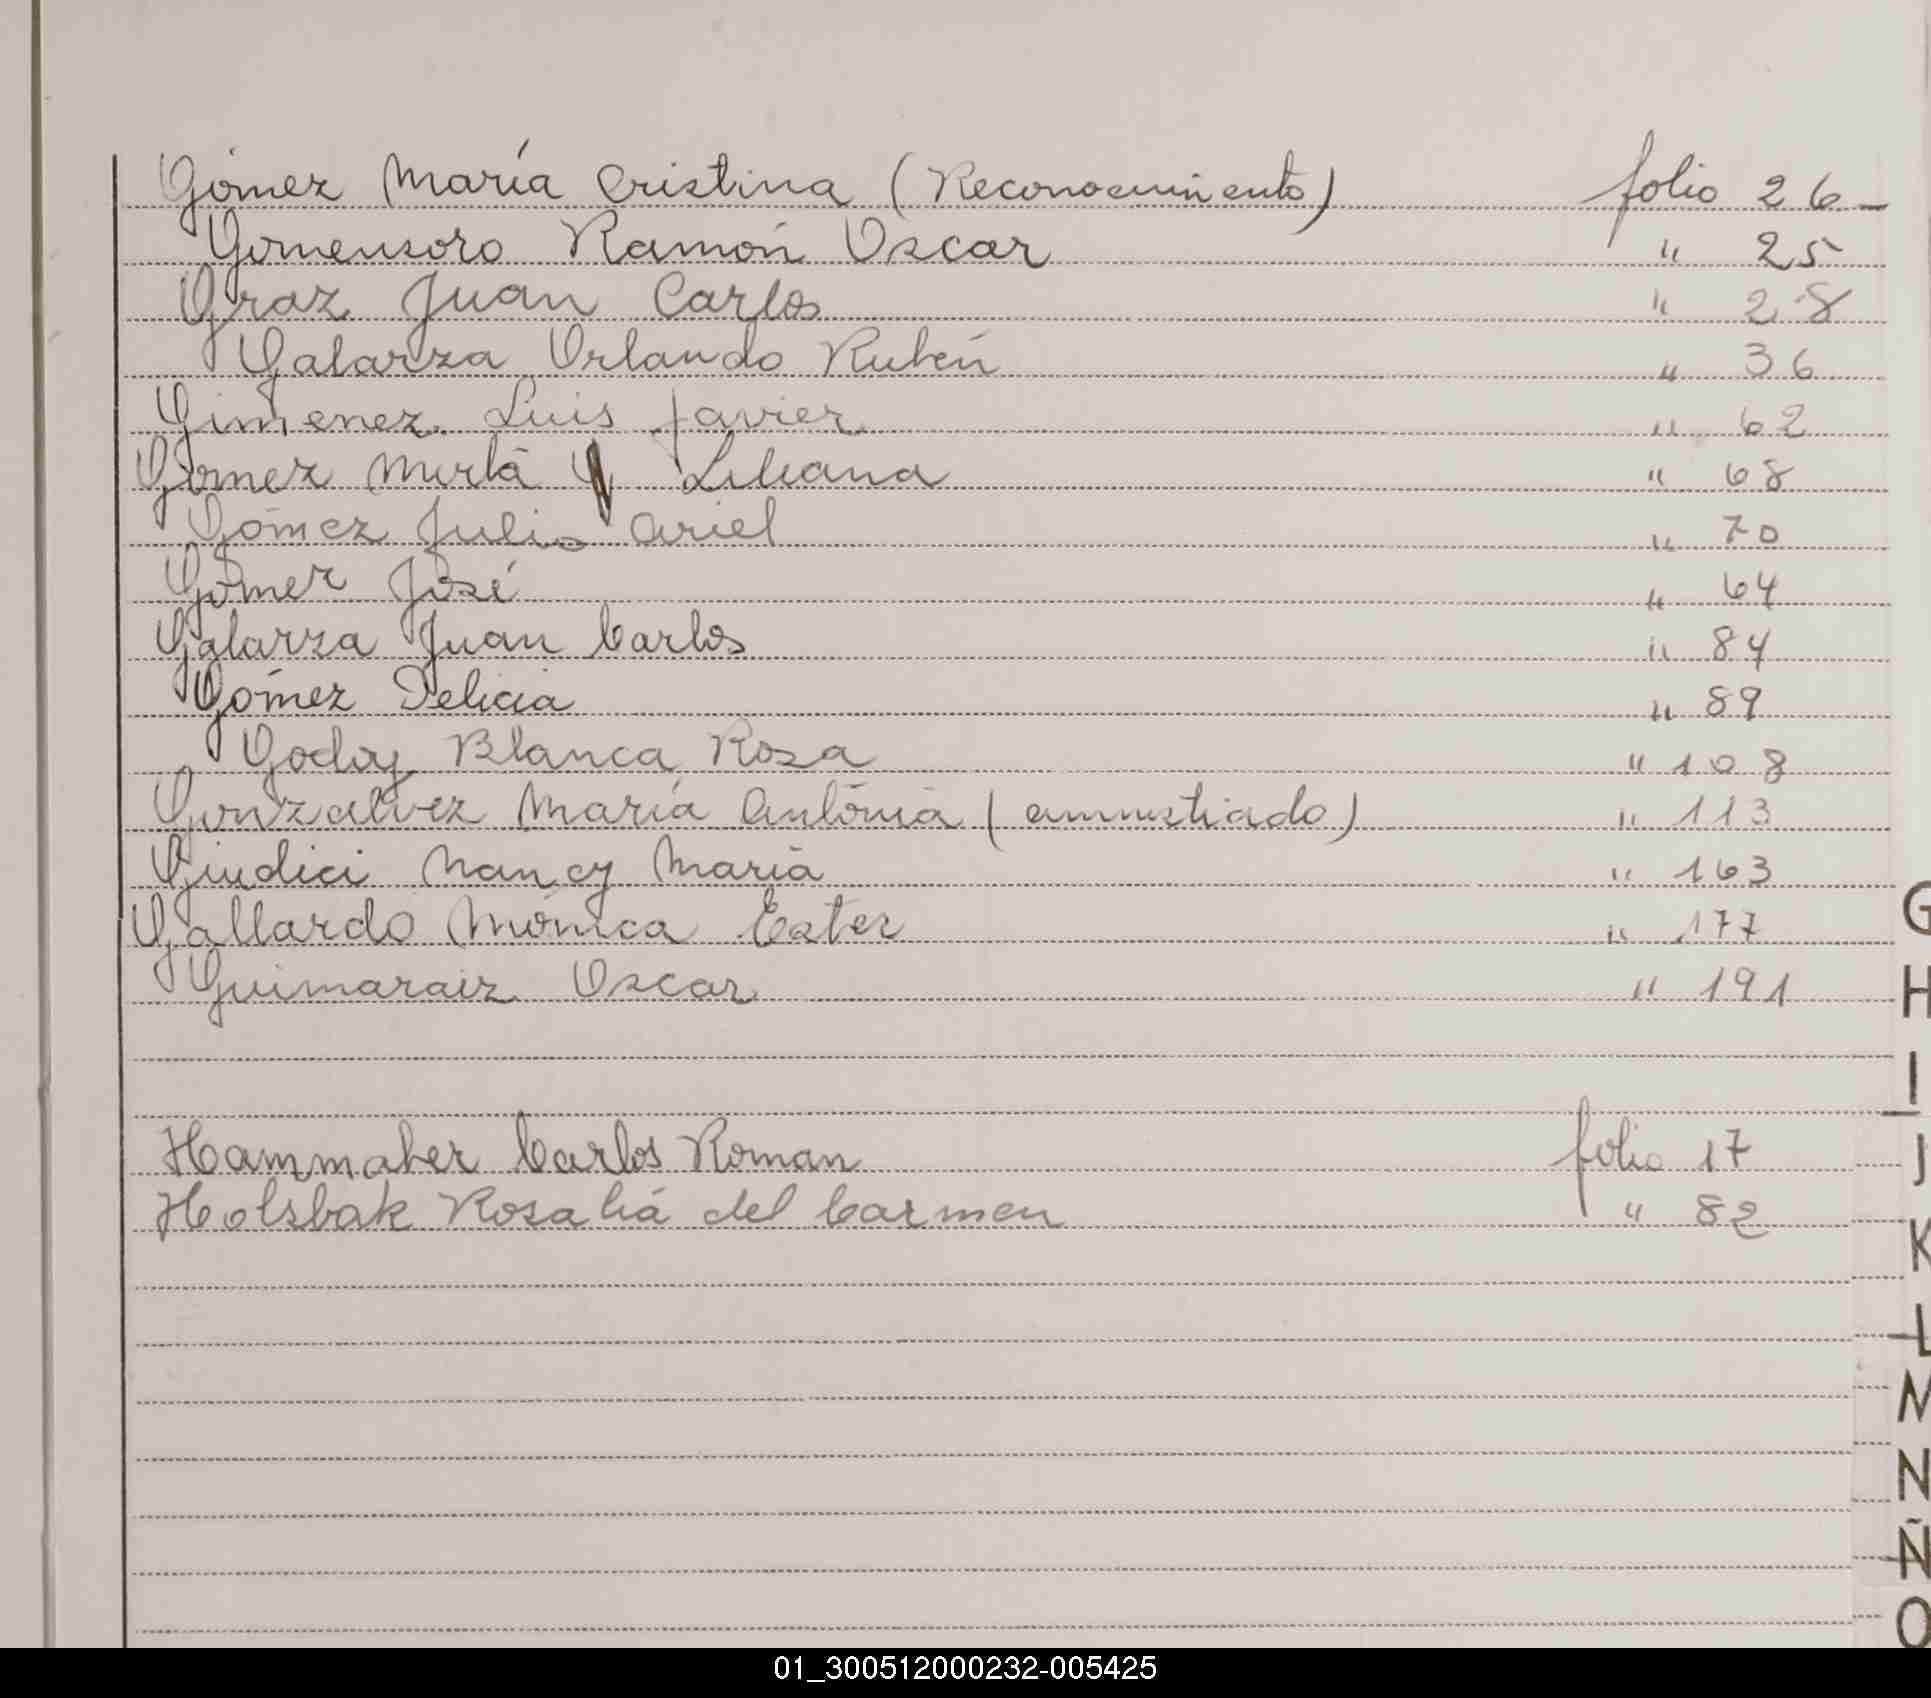 Gómez María Cristina (Reconocimiento) folio 26 -
Gomensoro Ramón Oscar " 25
Graz Juan Carlos " 28
Galarza Orlando Rubén " 36
Gimenez Luis Javier " 62
Gómez Mirta Liliana " 68
Gómez Julio Ariel " 70
Gómez José " 64
Galarza Juan Carlos " 84
Gómez Delicia " 89
Godoy Blanca Rosa " 108
Gonzalvez María Antónia (amnistiado) " 113
Giudici Nancy María " 163
Gallardo Mónica Ester " 177
Guimaraiz Oscar " 191
Hammaher Carlos Roman folio 17
Holsbak Rosalía del Carmen " 82
G
H
I
J
K
L
M
N
Ñ
O
01_300512000232-005425